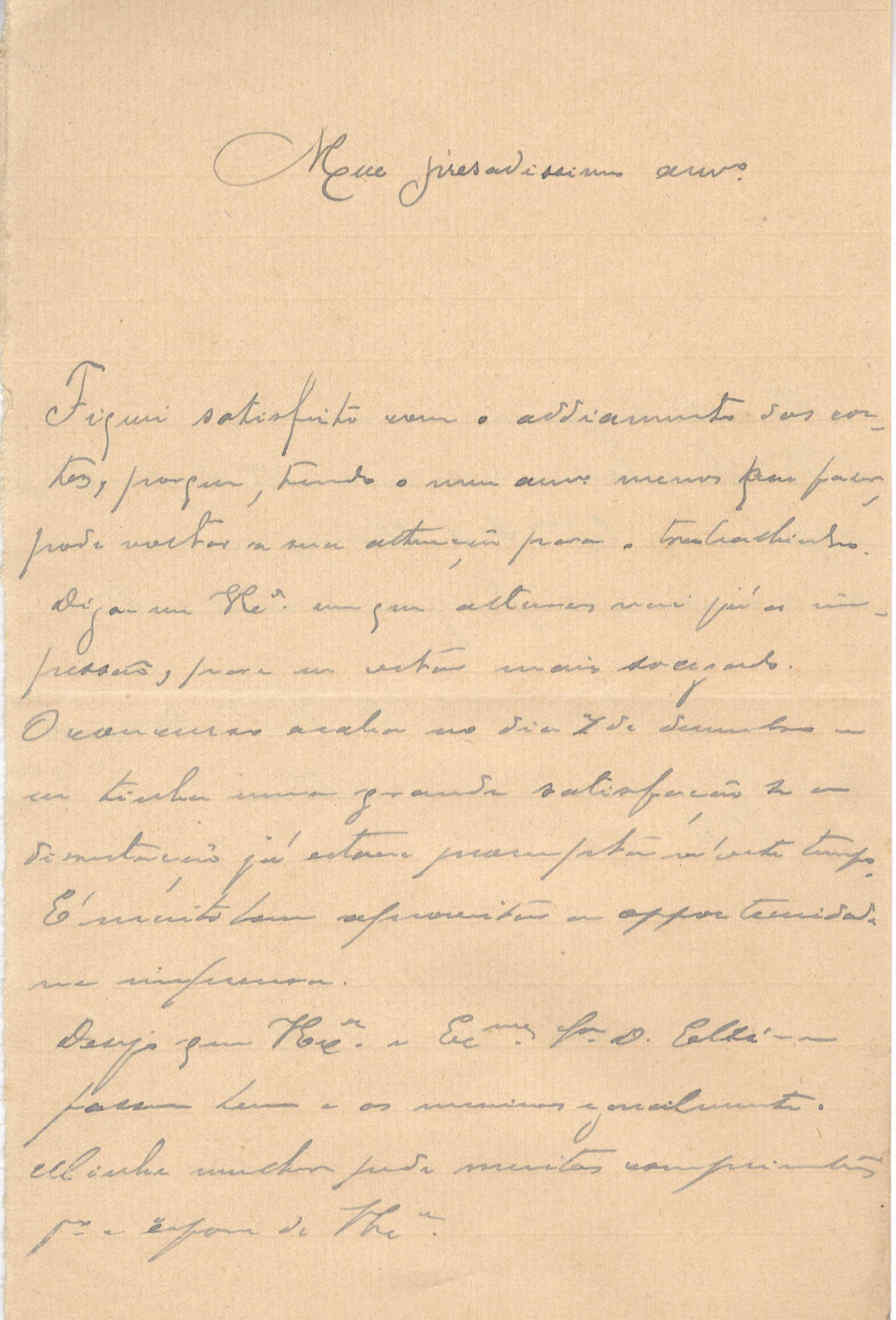 Meu presadissimo amº.
Fiquei satisfeito com o addiamento das cor-
tes, porque, tendo o meu amº menos que fazer,
pode voltar a sua attenção para o trabalhinho.
Diga-me V Exª. em que alturas vai já a im-
pressão, para eu estar mais socegado.
O concurso acaba no dia 7 de dezembro e
eu tinha uma grande satisfação se a
dissertação já estava prompta a este tempo.
É muito bom aproveitar a opportunidade
na imprensa.
Desejo que V Exª. e Exma. Srª D.
passem bem e os meninos egualmente.
Minha mulher pede muitos comprimentos
pª a esposa de V Exª.